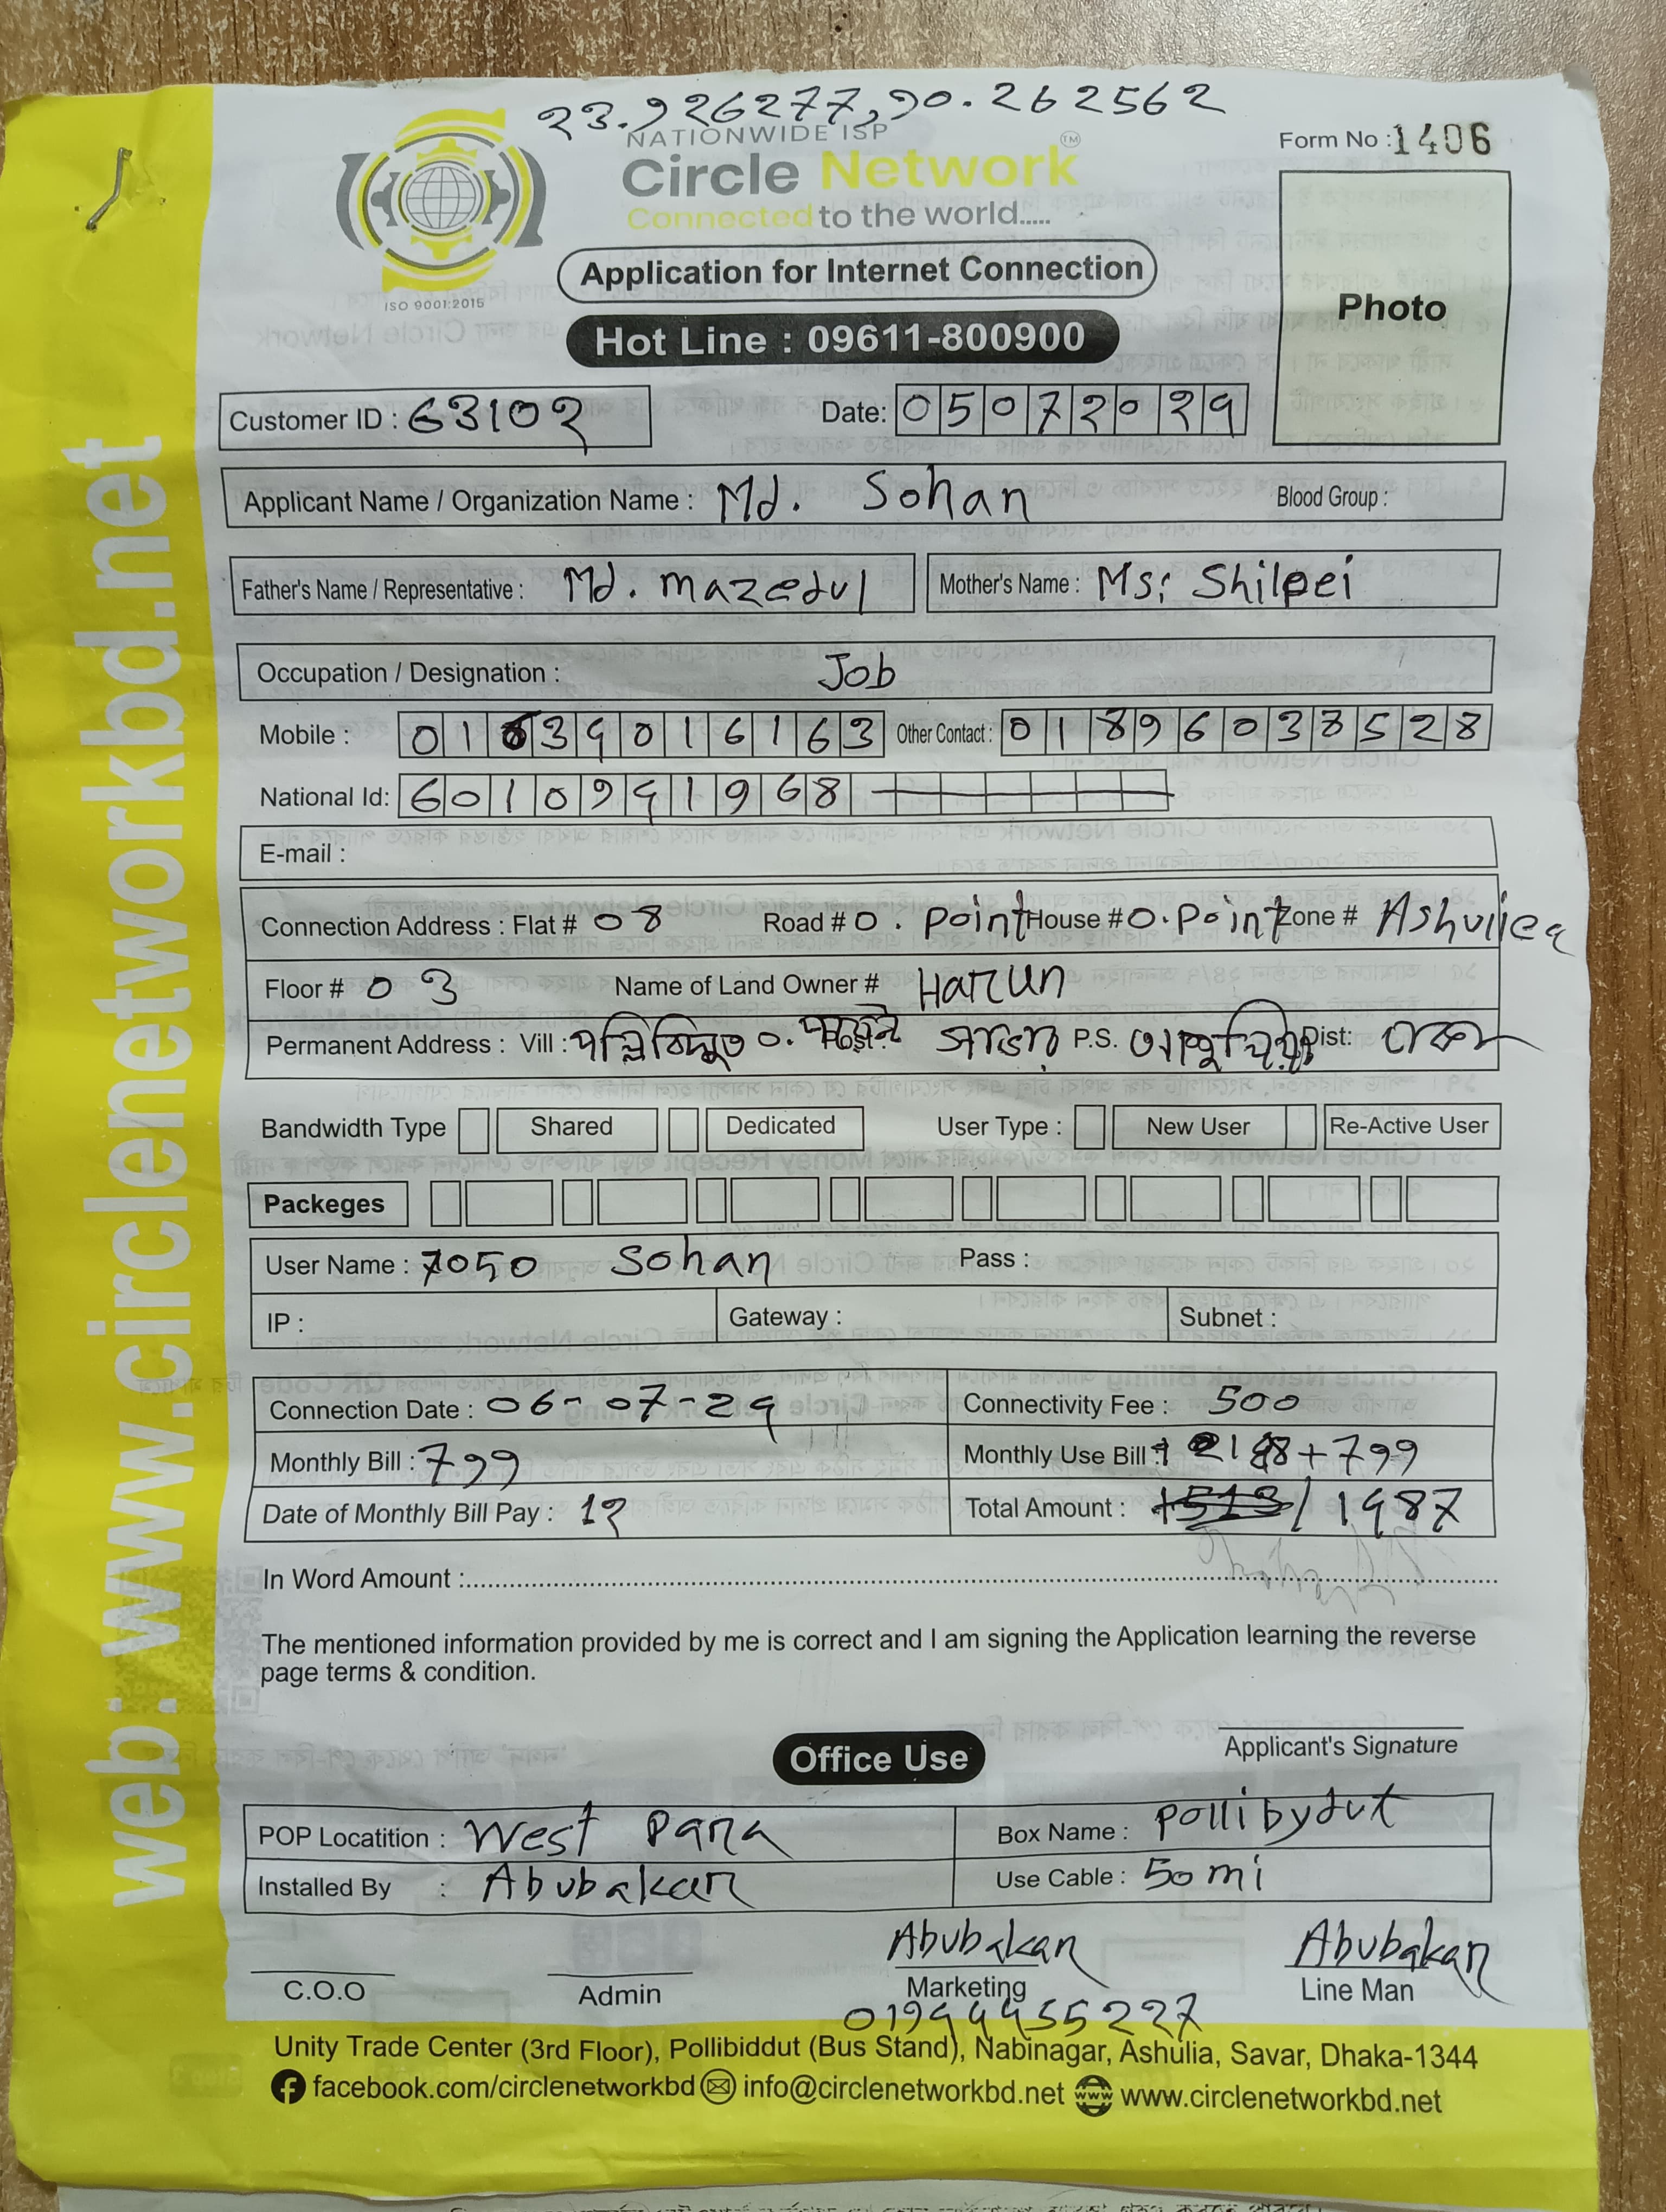 23.926277,90.262562
NATIONWIDE ISP
Circle Network™
Connected to the world.....
ISO 9001:2015
Form No : 1406
Application for Internet Connection
Photo
Hot Line : 09611-800900
Customer ID : 63102 Date: 05072024
Applicant Name / Organization Name : Md. Sohan Blood Group :
Father's Name / Representative : Md. Mazedul Mother's Name : Ms: Shilpei
Occupation / Designation : Job
Mobile : 01634016163 Other Contact : 01896038528
National Id: 6010941968
E-mail :
Connection Address : Flat # 08 Road # 0. Point House # 0. Point Zone # Ashuliea
Floor # 03 Name of Land Owner # Harun
Permanent Address : Vill : পল্লিবিদ্যুত ০. সাভার P.S. আশুলিয়া Dist: ঢাকা
Bandwidth Type Shared Dedicated User Type : New User Re-Active User
Packeges
User Name : 7050 Sohan Pass :
IP : Gateway : Subnet :
Connection Date : 06-07-24 Connectivity Fee : 500
Monthly Bill : 799 Monthly Use Bill : +799
Date of Monthly Bill Pay : 12 Total Amount : 1987
In Word Amount :
The mentioned information provided by me is correct and I am signing the Application learning the reverse
page terms & condition.
Applicant's Signature
Office Use
POP Locatition : West Para Box Name : Pollibydut
Installed By : Abubakar Use Cable : 50 mi
Abubakar Abubakar
C.O.O Admin Marketing Line Man
01944455227
Unity Trade Center (3rd Floor), Pollibiddut (Bus Stand), Nabinagar, Ashulia, Savar, Dhaka-1344
facebook.com/circlenetworkbd info@circlenetworkbd.net www.circlenetworkbd.net
web: www.circlenetworkbd.net